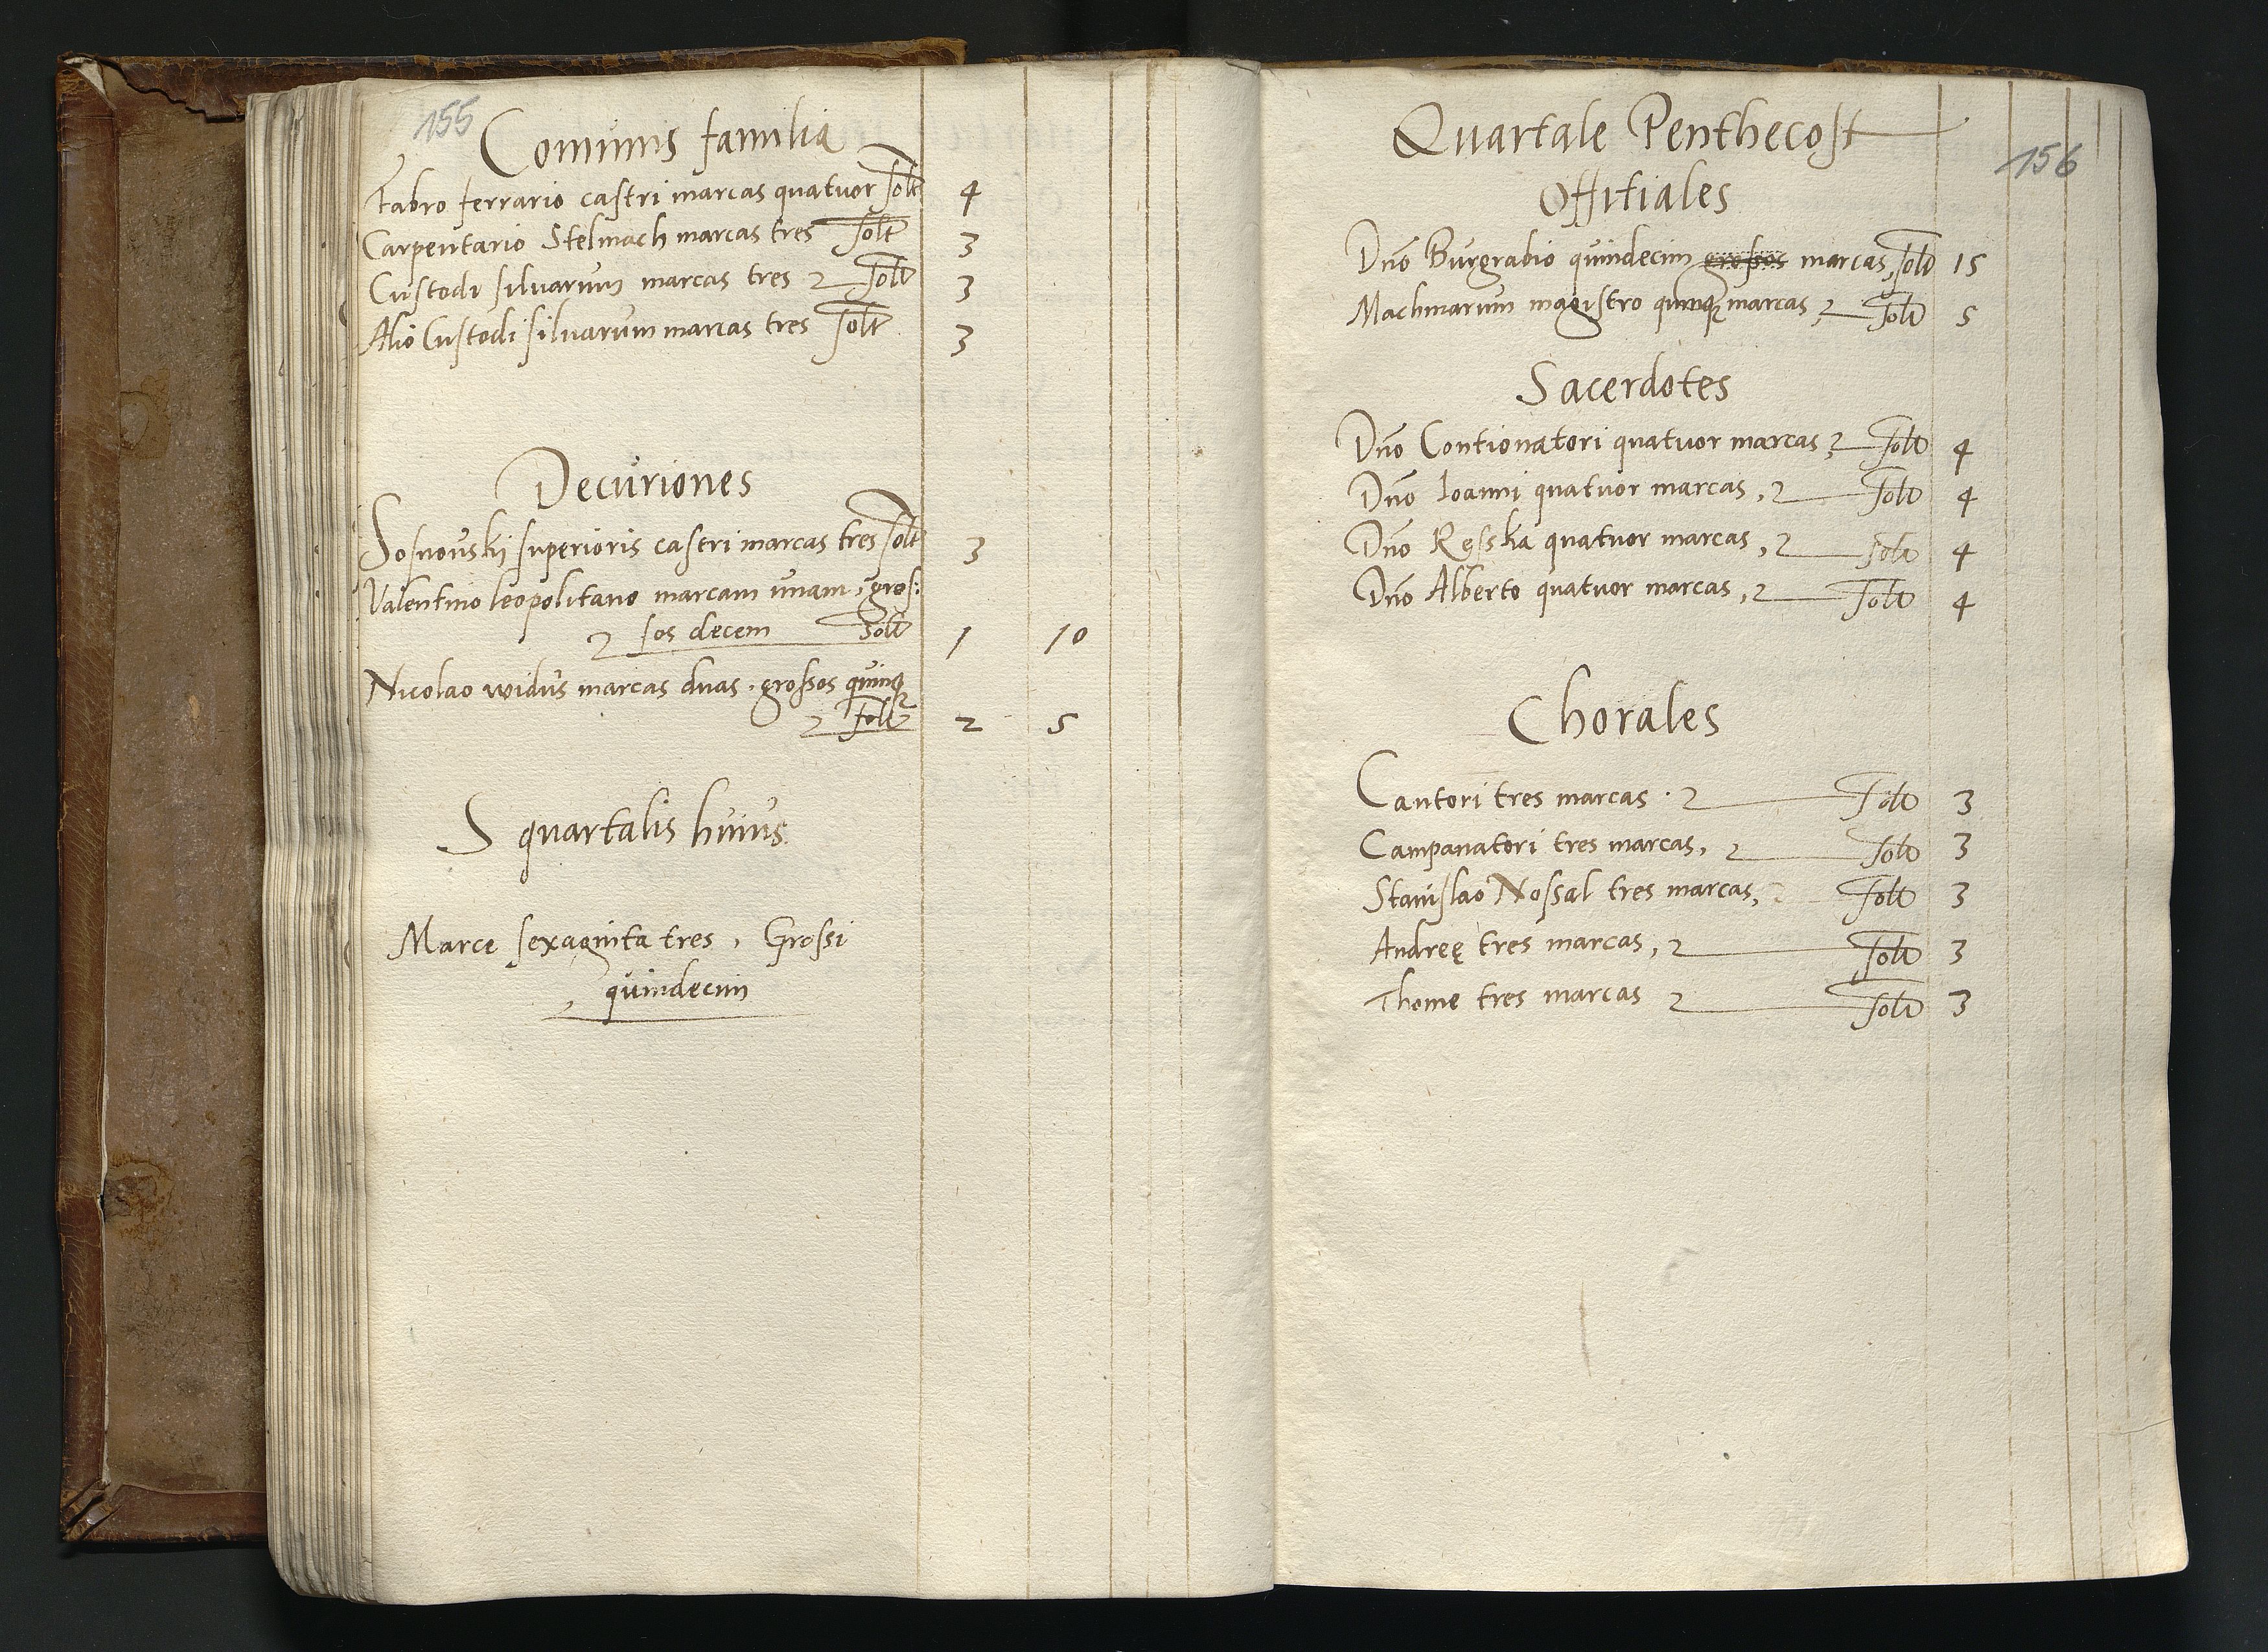 155
Comunis familia
Fabro ferrario castri marcas quatuor solt 4
Carpentario Stelmach marcas tres solt 3
Custodi siluarum marcas tres solt 3
Alio Custodi siluarum marcas tres solt 3
Decuriones
Sosnouskj superioris castri marcas tres solt 3
Valentino leopolitano marcam unam, gros:
sos decem solt 1 10
Nicolao widus marcas duas. grossos quinq
solt 2 5
S quartalis huius
Marce sexaginta tres, Grossi
quindecim
156
Quartale Penthecost
Offitiales
Dno Burgrabio quindecim grossos marcas, solt 15
Machinarum magistro quinq marcas, solt 5
Sacerdotes
Dno Contionatori quatuor marcas, solt 4
Dno Ioanni quatuor marcas, solt 4
Dno Ręsska quatuor marcas, solt 4
Dno Alberto quatuor marcas, solt 4
Chorales
Cantori tres marcas. solt 3
Campanatori tres marcas, solt 3
Stanislao Nossal tres marcas, solt 3
Andreę tres marcas, solt 3
Thome tres marcas solt 3